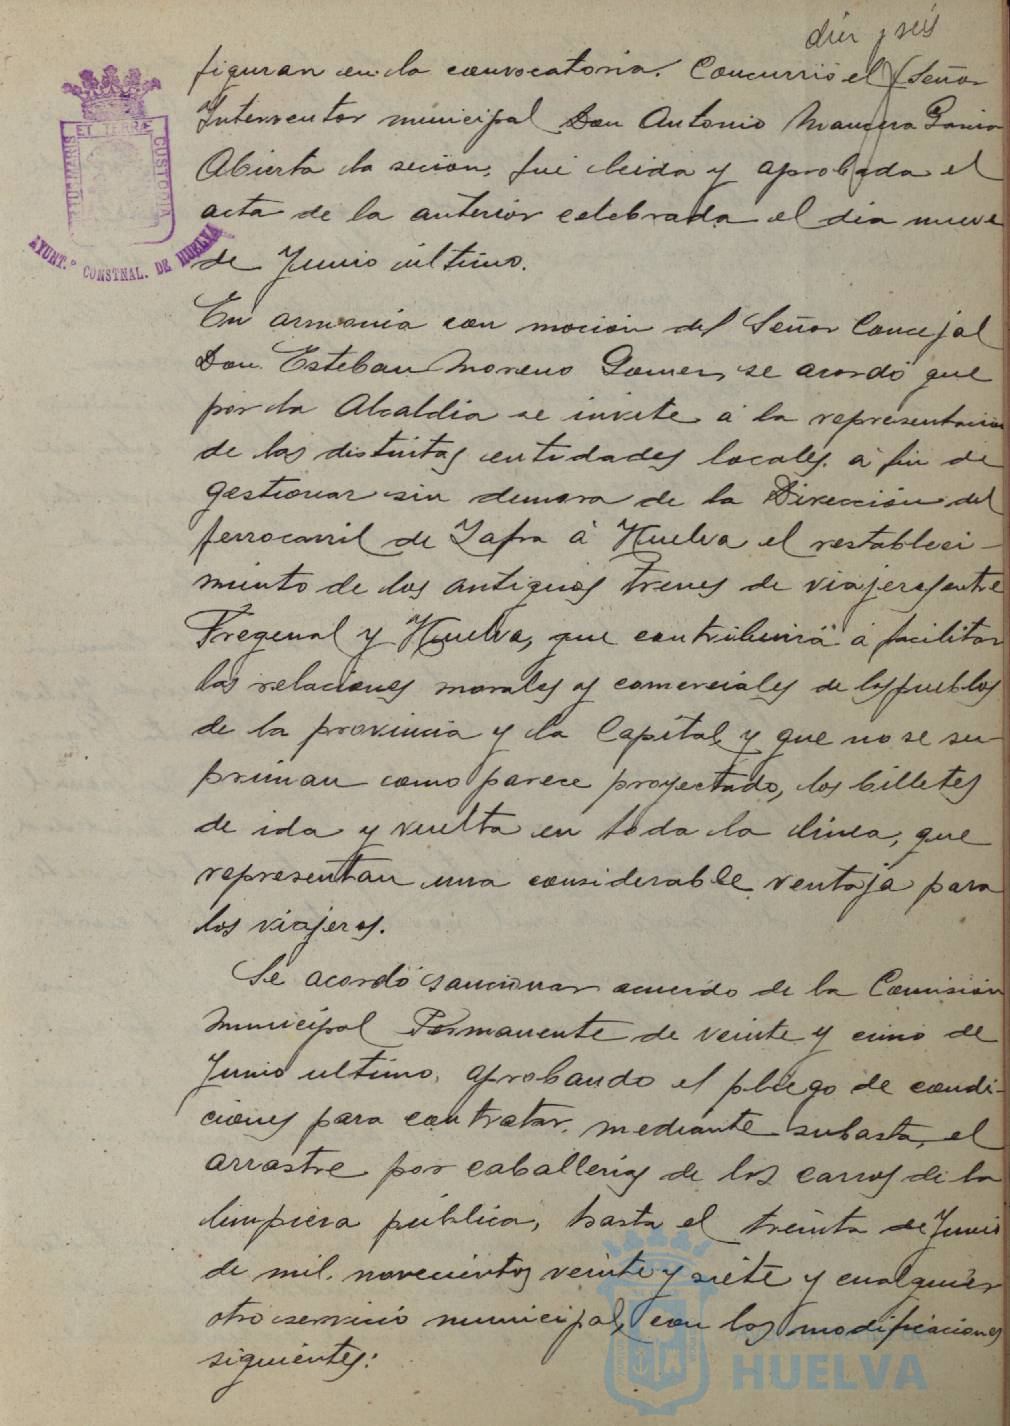 diez y seis
figuran en la convocatoria. Concurrió el Señor
Interventor municipal Don Antonio Mancera
Abierta la secion, fué leida y aprobada el
acta de la anterior celebrada el dia nueve
de Junio último.
En armonia con mocion del Señor Concejal
Don Esteban Moreno Gomez, se acordó que
por la Alcaldia se invite á la representacion
de las distintas entidades locales á fin de
gestionar sin demora de la Direccion del
ferrocarril de Zafra á Huelva el restableci-
miento de los antiguos trenes de viajeros entre
Fregenal y Huelva, que contribuirá á facilitar
las relaciones morales y comerciales de los pueblos
de la provincia y la Capital y que no se su-
priman como parece proyectado, los billetes
de ida y vuelta en toda la linea, que
representan una considerable ventaja para
los viajeros.
Se acordó sancionar acuerdo de la Comision
Municipal Permanente de veinte y cinco de
Junio ultimo, aprobando el pliego de condi-
ciones para contratar, mediante subasta, el
arrastre por caballerias de los carros de la
limpieza pública, hasta el treinta de Junio
de mil novecientos veinte y siete y cualquier
otro servicio municipal, con las modificaciones
siguientes:
ET TERRÆ
CUSTODIA
AYUNT.º CONSTNAL. DE HUELVA
HUELVA